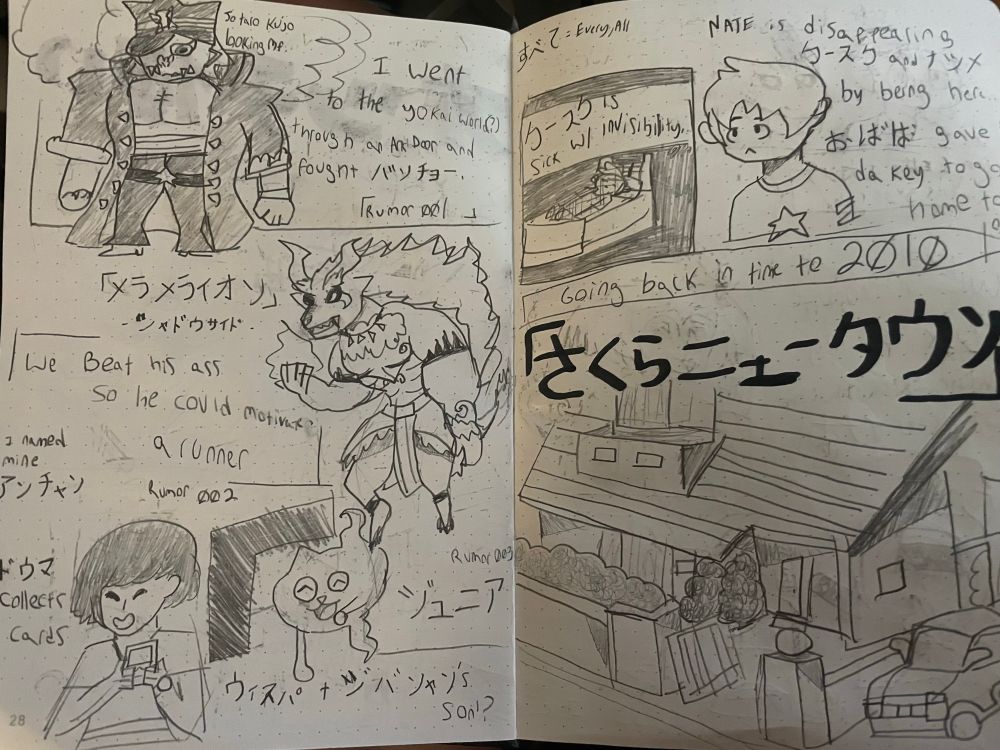 Jotaro Kujo
looking mf.
I went
to the yokai world(?)
through an And Door and
fought バンチョー.
「Rumor 001」
「メラメライオン」
- シャドウサイド -
We Beat his ass
so he could motivate
a runner
I named
mine
アンチャン
Rumor 002
ドウマ
collects
cards
Rumor 003
ジュニア
ウィスパ + ジバンャン's
son!?
28
すべて = Every, All
ケースケ is
sick w/ invisibility.
NATE is disappearing
ケースケ and ナツメ
by being here.
おばば gave
da key to go
home to
Going back in time to 2010
「さくらニュータウン